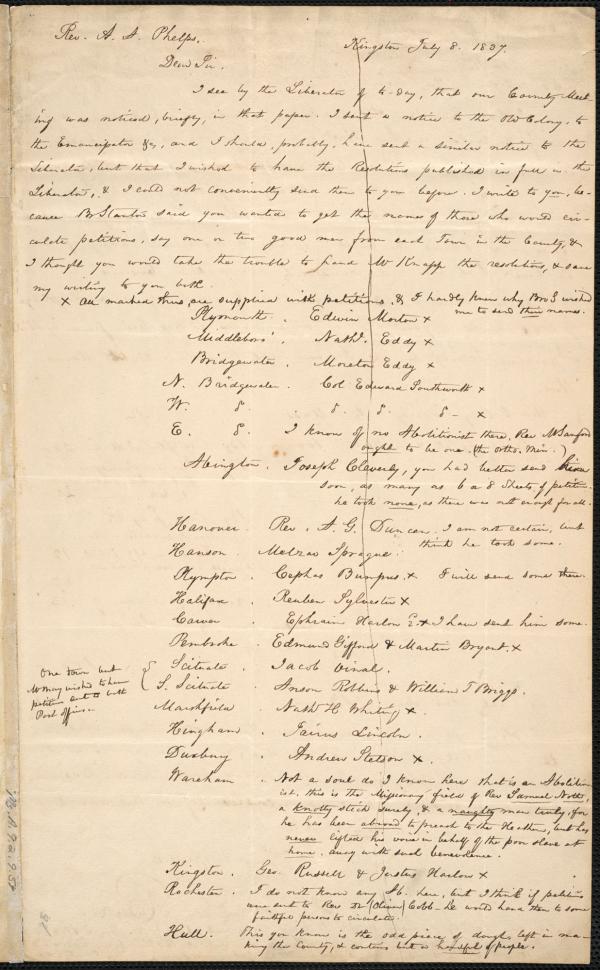 Rev. A. A. Phelps.
Kingston July 8. 1837.
Dear Sir.
I see by the Liberator of to-day, that our County Meet-
ing was noticed, briefly, in that paper. I sent a notice to the Old Colony, to
the Emancipator &c, and I should, probably, have sent a similar notice to the
Liberator, but that I wished to have the Resolutions published in full in the
Liberator, & I could not conveniently send them to you before. I write to you, be-
cause Br Stanton said you wanted to get the names of those who would cir-
culate petitions, say one or two good men from each Town in the County, &
I thought you would take the trouble to hand Mr Knapp the resolutions, & save
my writing to you both.
x all marked thus, are supplied with petitions, & I hardly know why Bro S wished
me to send their names.
Plymouth . Edwin Morton x
Middleboro'. Nathl. Eddy x
Bridgewater. Moreton Eddy x
N. Bridgewater. Col Edward Southworth x
W. " " " " x
E. " I know of no Abolitionist there, Rev Mr Sanford
ought to be one. (the Ortho. Min.)
Abington. Joseph Cleverly, you had better send him
soon, as many as 6 or 8 Sheets of petitions
he took none, as there was not enough for all.
Hanover Rev. A. G. Duncan, I am not certain, but
think he took some.
Hanson. Melzar Sprague.
Plympton. Cephas Bumpus. x I will send some there.
Halifax . Reuben Sylvester x
Carver . Ephraim Harlow 2d x I have sent him some.
Pembroke . Edmund Gifford & Martin Bryant. x
Scituate . Jacob Vinal.
S. Scituate . Anson Robbins & William T Briggs.
One town but
Mr May wished to have
petitions sent to both
Post offices.
Marshfield . Nathl H Whiting x
Hingham . Jairus Lincoln.
Duxbury . Andrew Stetson x.
Wareham . Not a soul do I know here that is an Abolition
ist, this is the Missionary field of Rev Samuel Nott,
a knotty stick surely, & a naughty man truly, for
he has been abroad to preach to the Heathen, but has
never lifted his voice in behalf of the poor slave at
home. away with such benevolence.
Kingston. Geo. Russell & Justus Harlow x
Rochester. I do not know any Ab. here, but I think if petitions
were sent to Rev Dr (Oliver) Cobb he would hand them to some
faithful persons to circulate.
Hull. This you know is the odd piece of dough left in ma-
king the County, & contains but a handful of people.